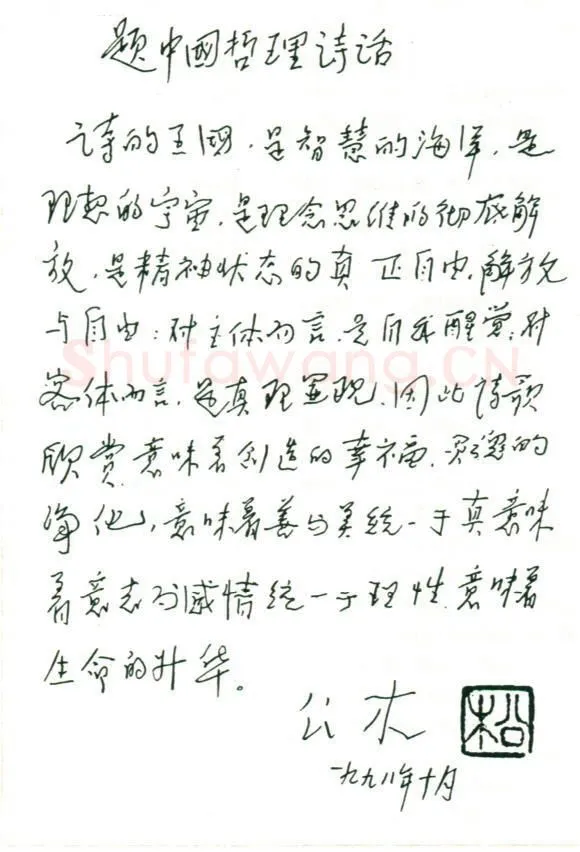 题中國哲理诗话
诗的王國,是智慧的海洋,是
理想的宇宙,是理念思维的彻底解
放,是精神状态的真正自由,解放
与自由:对主体而言,是自我醒觉;对
客体而言,是真理显现,因此诗歌
欣赏,意味着创造的幸福,灵魂的
净化,意味着善与美统一于真,意味
着意志与感情统一于理性,意味着
生命的升华。
公木
一九九八年十月
Shufawang.CN